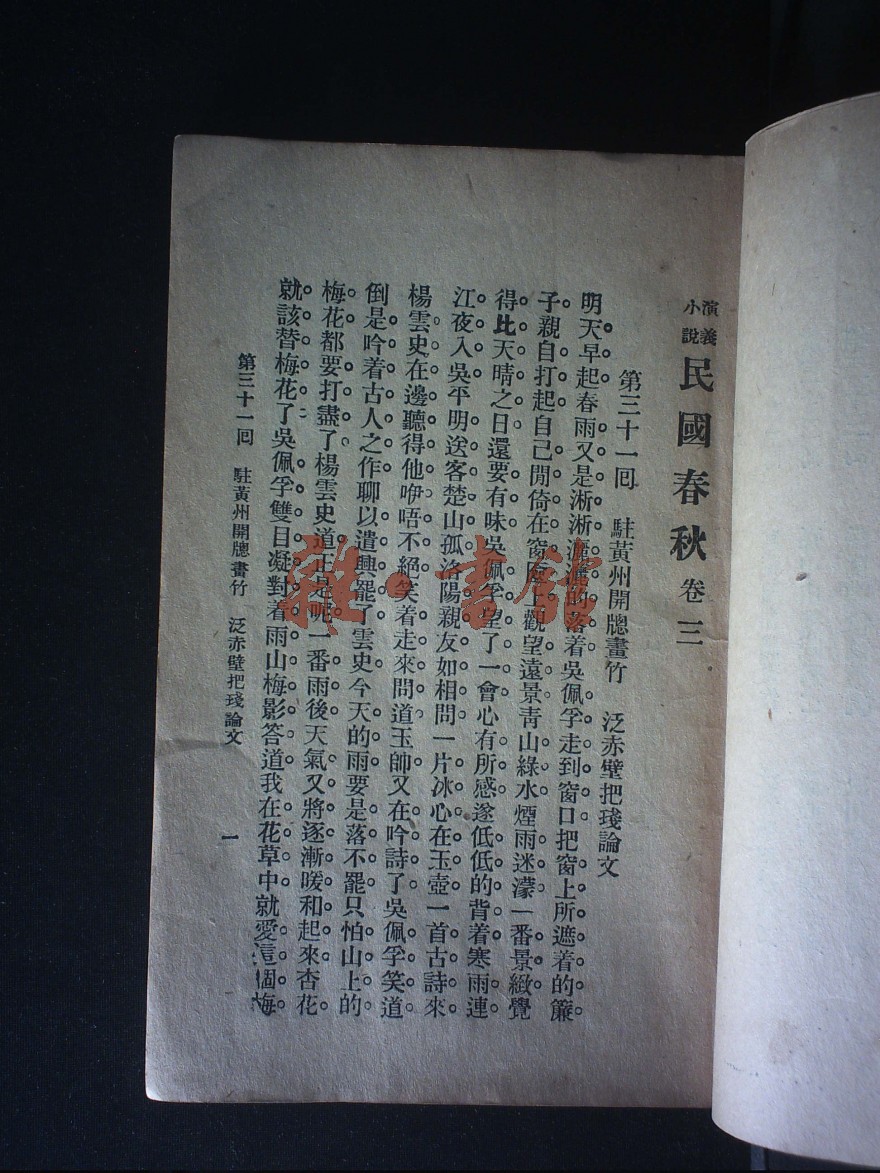 演義
小說
民國春秋 卷三
第三十一回 駐黃州開牕畫竹 泛赤壁把琖論文
明天早起春雨又是淅淅瀟瀟的落着吳佩孚走到窗口把窗上所遮着的簾
子親自打起自己閒倚在窗檻上觀望遠景青山綠水煙雨迷濛一番景緻覺
得比天晴之日還要有味吳佩孚望了一會心有所感遂低低的背着寒雨連
江夜入吳平明送客楚山孤洛陽親友如相問一片冰心在玉壺一首古詩來
楊雲史在邊聽得他咿唔不絕笑着走來問道玉帥又在吟詩了吳佩孚笑道
倒是吟着古人之作聊以遣興罷了雲史今天的雨要是落不罷只怕山上的
梅花都要打盡了楊雲史道正是呢一番雨後天氣又將逐漸暖和起來杏花
就該替梅花了吳佩孚雙目凝對着雨山梅影答道我在花草中就愛這個梅
第三十一回 駐黃州開牕畫竹 泛赤壁把琖論文
一
雜·書館